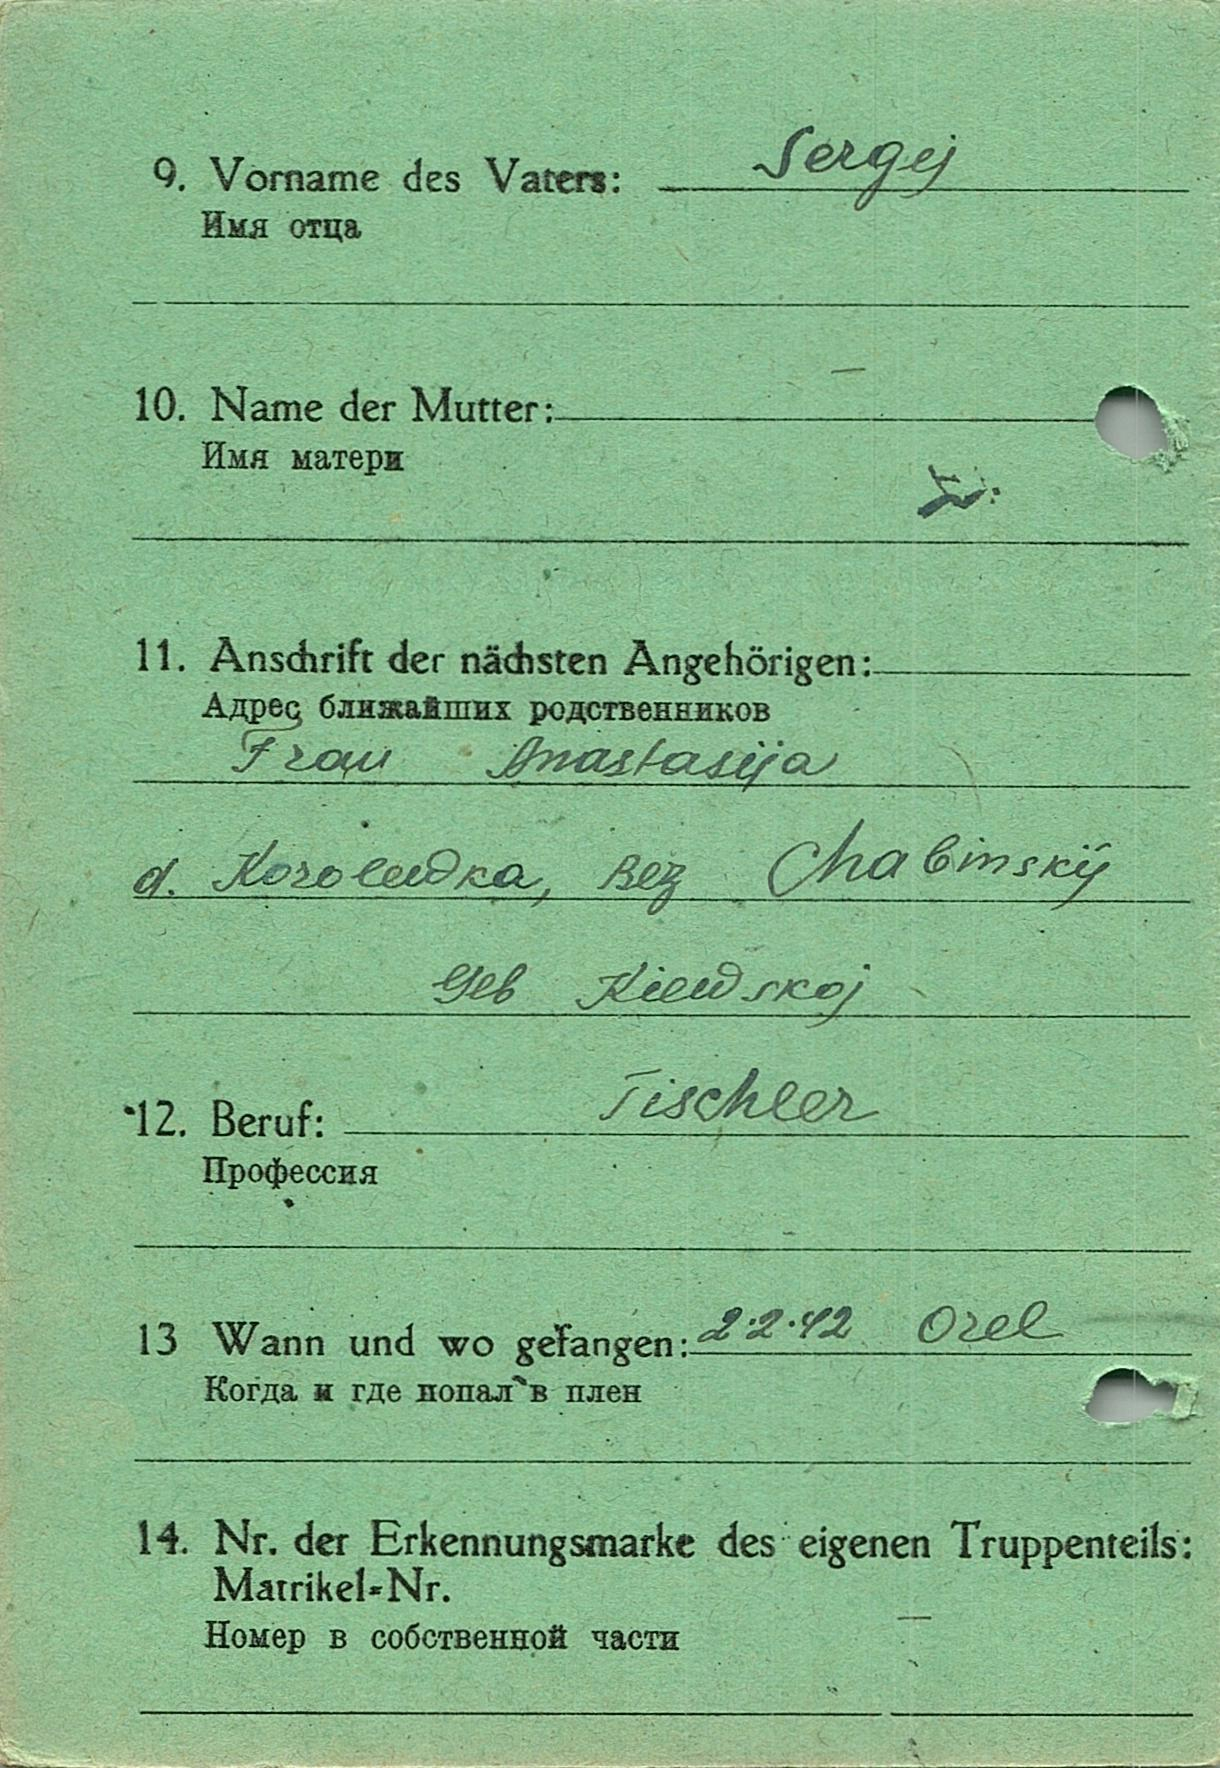 9. Vorname des Vaters: Sergej
Имя отца
10. Name der Mutter: —
Имя матери
11. Anschrift der nächsten Angehörigen:
Адрес ближайших родственников
Frau Anastasija
d. Korolewka, Bez Chabinskij
Geb Kiewskoj
12. Beruf: Tischler
Профессия
13 Wann und wo gefangen: 2.2.42 Orel
Когда и где попал в плен
14. Nr. der Erkennungsmarke des eigenen Truppenteils:
Matrikel-Nr.
Номер в собственной части —